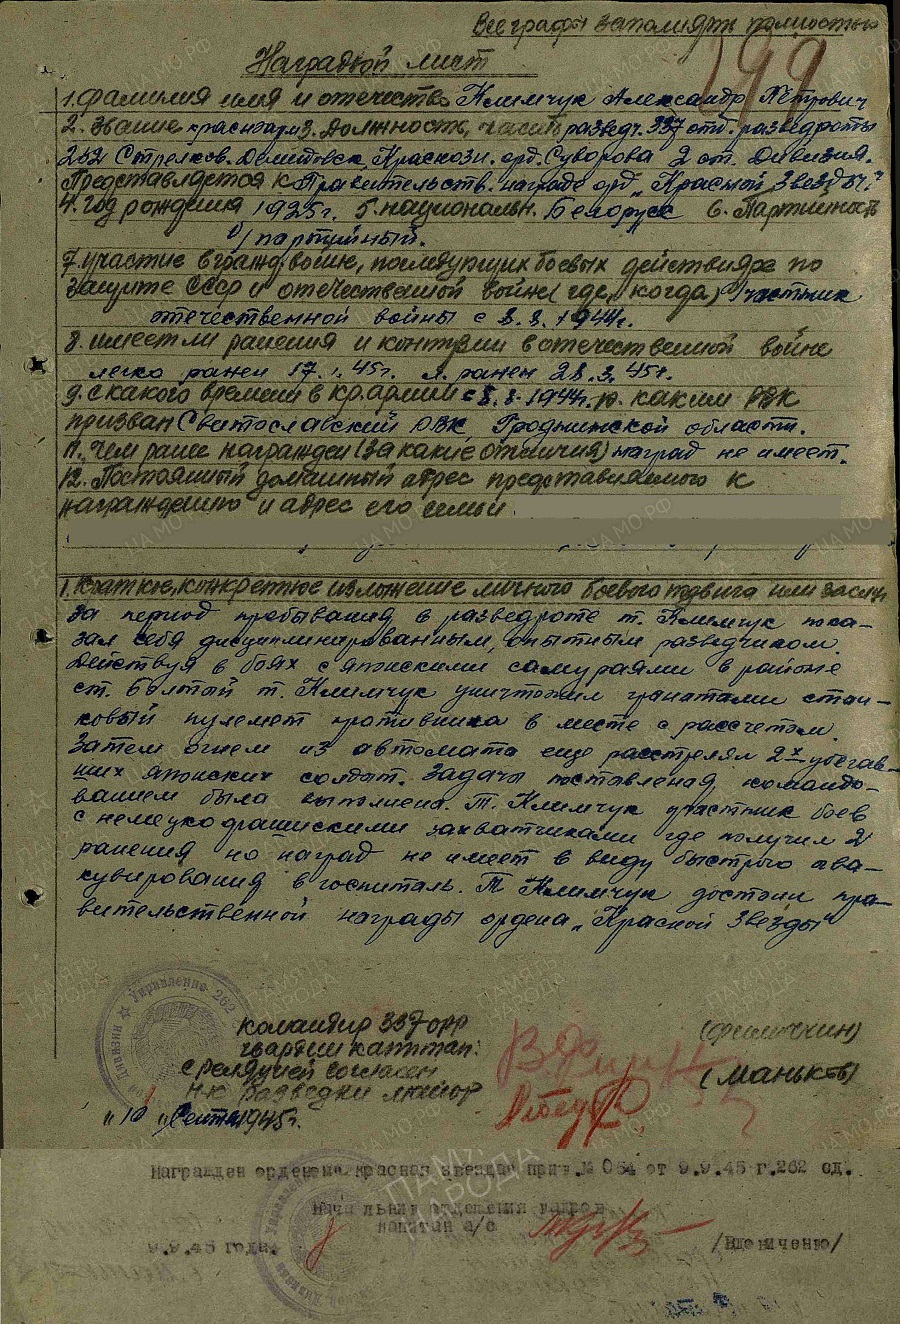 Все графы заполнять полностью
199
Наградной лист
1. Фамилия имя и отечество Климчук Александр Петрович
2. Звание красноарм. 3. Должность, часть разведч. 337 отд. разведроты
262 Стрелков. Демидовск. Краснозн. орд. Суворова 2 ст. Дивизия.
Представляется к Правительств. награде орд. „Красной Звезды"
4. год рождения 1925г. 5. национальн. Белорус 6. Партийность
б/партийный.
7. участие в гражд. войне, последующих боевых действиях по
защите СССР и отечественной войне (где, когда) Участник
отечественной войны с 8.8.1944г.
8. имеет ли ранения и контузии в отечественной войне
легко ранен 17.1.45г. л. ранен 28.2.45г.
9. с какого времени в кр. армии с 8.8.1944г. 10. каким РВК
призван Свитославский РВК, Гродненской области.
11. Чем ранее награжден (за какие отличия) наград не имеет.
12. Постоянный домашний адрес представляемого к
награждению и адрес его семьи
1. Краткое, конкретное изложение личного боевого подвига или заслуг
За период пребывания в разведроте т. Климчук пока-
зал себя дисциплинированным, опытным разведчиком.
Действуя в боях с японскими самураями в районе
ст. т. Климчук уничтожил гранатами стан-
ковый пулемет противника в месте с рассчетом.
Затем огнем из автомата еще расстрелял 2х убегав-
ших японских солдат. Задача поставленая командо-
ванием была выполнена. Т. Климчук участник боев
с немецко фашискими захватчиками где получил 2
ранения но наград не имеет в виду быстрого ева-
куирования в госпиталь. Т Климчук достоин пра-
вительственной награды ордена „Красной Звезды"
командир 337 орр
гвардии капитан:
с реляцией согласен
Н-к разведки майор
(Манько)
„10 „Сентяб 1945г.
Награжден орденома красная звезда прик.№ 064 от 9.9.45 г.262 сд.
Начальник отделения кадров
капитан а/с
9.9.45 года.
ПАМЯТЬ НАРОДА
ЦА МО РФ